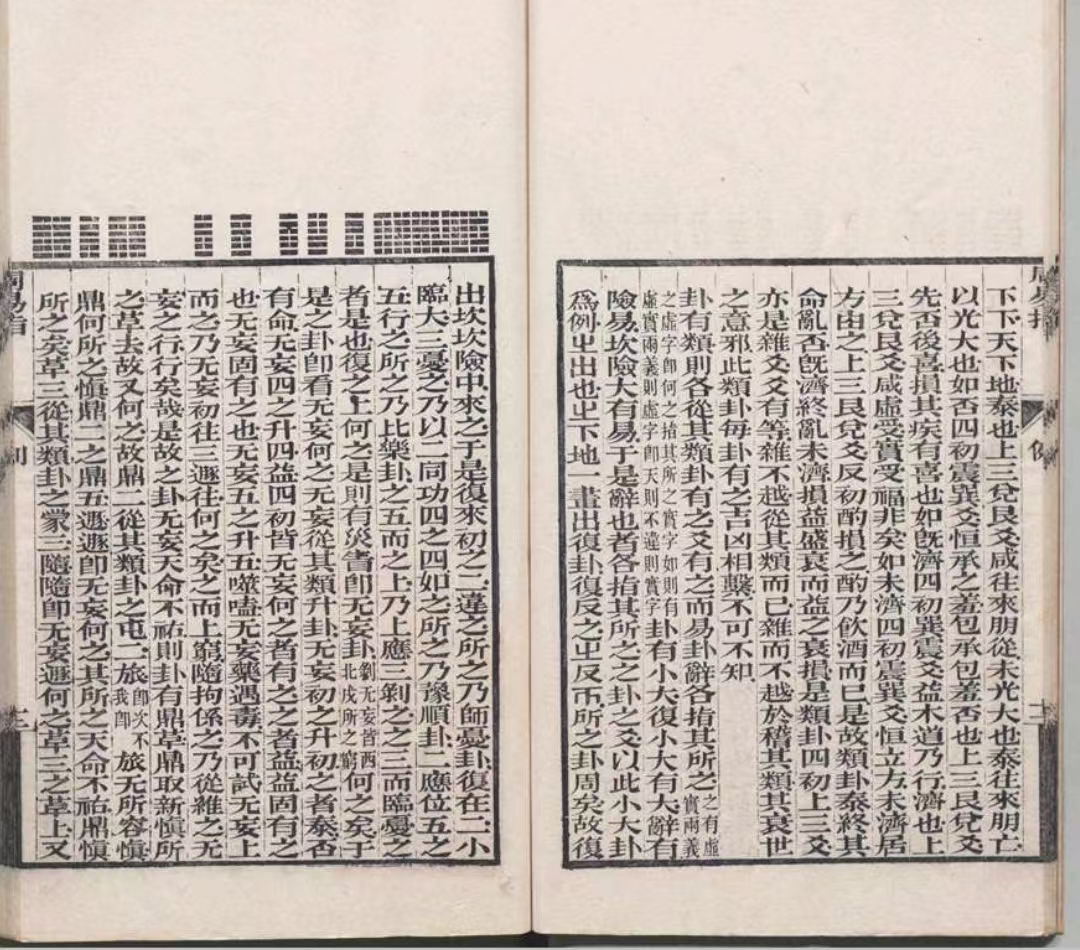 下下天下地泰也上三兌艮爻咸往來朋從未光大也泰往來朋亡
以光大也如否四初震巽爻恒承之羞包承包羞否也上三艮兌爻
先否後喜損其疾有喜也如旣濟四初巽震爻益木道乃行濟也上
三兌艮爻咸虛受實受福非矣如未濟四初震巽爻恒立方未濟居
方由之上三艮兌爻反初酌損之酌乃飮酒而已是故類卦泰終其
命亂否旣濟終亂未濟損益盛衰而益之衰損是類卦四初上三爻
亦是雜爻爻有等雜不越從其類而已雜而不越於稽其類其衰世
之意邪此類卦每卦有之吉凶相繫不可不知
卦有類則各從其類卦有之爻有之而易卦辭各指其所之之有虛實兩義
之虛字卽何之指其所之實字如則有虛實兩義則虛字卽天則不違則實字卦有小大復小大有大辭有
險易坎險大有易于是辭也者各指其所之之卦之爻以此小大卦
爲例㞢出也㞢下地一畫出復卦復反之㞢反帀所之卦周矣故復
出坎坎險中來之于是復來初之二違之所之乃師憂卦復在二小
臨大三憂之乃以二同功四之四如之所之乃豫順卦二應位五之
五行之所之乃比樂卦之五而之上乃上應三剝之之三而臨憂之
者是也復之上何之是則有災眚卽无妄卦劉无妄皆西北戌所之窮何之矣于
是之卦卽看无妄何之无妄從其類升卦无妄初之升初之者泰否
有命无妄四之升四益四初皆无妄何之者有之之者益益固有之
也无妄固有之也无妄五之升五噬嗑无妄藥遇毒不可試无妄上
而之乃无妄初往三遯往何之矣之而上窮隨拘係之乃從維之无
妄之行行矣哉是故之卦无妄天命不祐則卦有鼎革鼎取新愼所
之革去故又何之故鼎二從其類卦之屯二旅卽次不我卽旅无所容愼
鼎何所之愼鼎二之鼎五遯遯卽无妄何之其所之天命不祐鼎愼
所之矣革三從其類卦之蒙三隨隨卽无妄遯何之革三之革上又